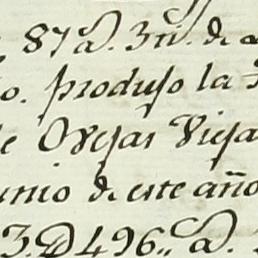 87 a. 3 n. de
o. produjo la
e Ovejas Vieja
unio de este año
3. D 496,, a.